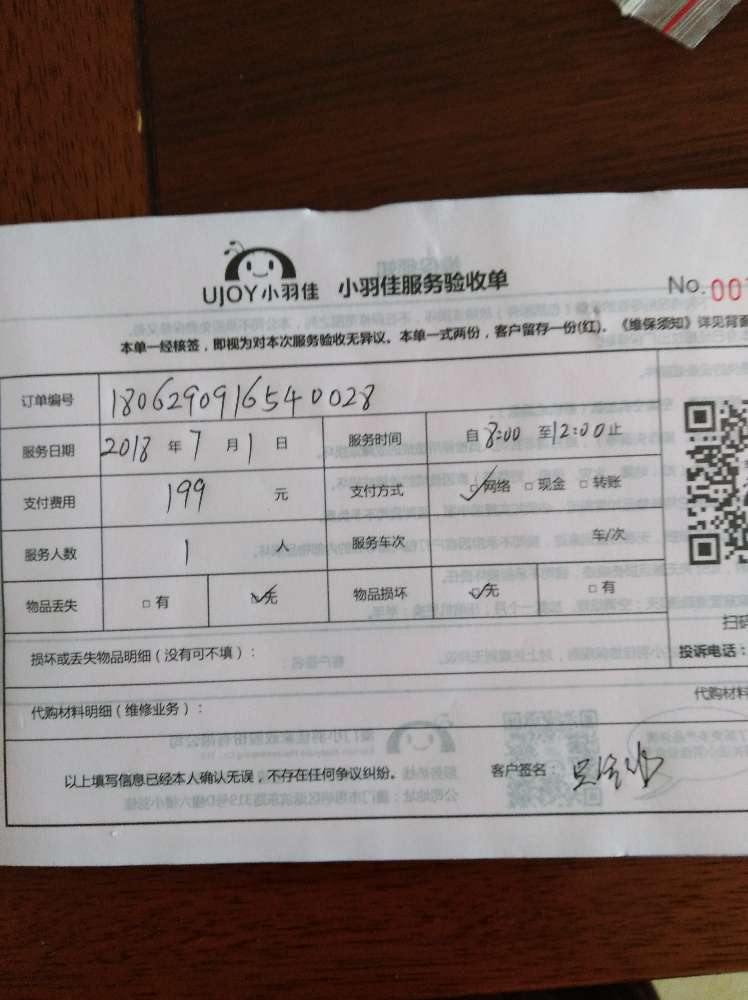 UJOY小羽佳 小羽佳服务验收单 No. 00
本单一经核签，即视为对本次服务验收无异议。本单一式两份，客户留存一份(红)。《维保须知》详见背面
订单编号 180629091654 0028
服务日期 2018 年 7 月 1 日 服务时间 自 8:00 至12:00止
支付费用 199 元 支付方式 ✓网络 □ 现金 □ 转账
服务人数 1 人 服务车次 车/次
物品丢失 □ 有 ✓无 物品损坏 ✓无 □ 有
扫码
损坏或丢失物品明细（没有可不填）： 投诉电话：
代购材料明细（维修业务）： 代购材料
以上填写信息已经本人确认无误，不存在任何争议纠纷。 客户签名：